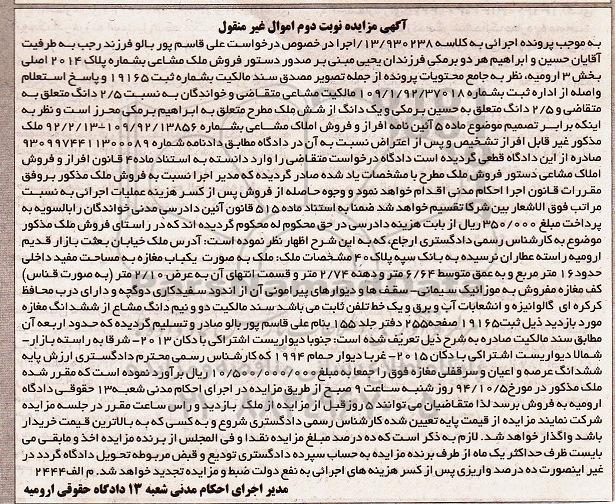 آگهی مزایده نوبت دوم اموال غیر منقول
به موجب پرونده اجرائی به کلاسه ۱۳/۹۳۰۲۳۸/اجرا در خصوص درخواست علی قاسم پور بالو فرزند رجب به طرفیت
آقایان حسین و ابراهیم هر دو برمکی فرزندان یحیی مبنی بر صدور دستور فروش ملک مشاعی بشماره پلاک ۲۰۱۴ اصلی
بخش ۳ ارومیه، نظر به جامع محتویات پرونده از جمله تصویر مصدق سند مالکیت بشماره ثبت ۱۹۱۶۵ و پاسخ استعلام
واصله از اداره ثبت بشماره ۱۰۹/۱/۹۲/۳۷۰۱۸ مالکیت مشاعی متقاضی و خواندگان به نسبت ۲/۵ دانگ متعلق به
متقاضی و ۲/۵ دانگ متعلق به حسین برمکی و یک دانگ از شش ملک مطرح متعلق به ابراهیم برمکی محرز است و نظر به
اینکه برابر تصمیم موضوع ماده ۵ آئین نامه افراز و فروش املاک مشاعی بشماره ۱۰۹/۹۲/۱۳۸۵۶-۹۲/۲/۱۳ ملک
مذکور غیر قابل افراز تشخیص و پس از اعتراض نسبت به آن در دادگاه مطابق دادنامه شماره ۹۳۰۹۹۷۴۴۱۱۳۰۰۰۸۹
صادره از این دادگاه قطعی گردیده است دادگاه درخواست متقاضی را وارد دانسته به استناد ماده ۴ قانون افراز و فروش
املاک مشاعی دستور فروش ملک مطرح با مشخصات یاد شده صادر گردیده که مدیر اجرا نسبت به فروش ملک مذکور بر وفق
مقررات قانون اجرا احکام مدنی اقدام خواهد نمود و وجوه حاصله از فروش پس از کسر هزینه عملیات اجرائی به نسبت
مراتب فوق الاشعار بین شرکا تقسیم خواهد شد ضمنا به استناد ماده ۵۱۵ قانون آئین دادرسی مدنی خواندگان را بالسویه به
پرداخت مبلغ ۳۵۰/۰۰۰ ریال از بابت هزینه دادرسی در حق محکوم له محکوم گردیده اند که در راستای فروش ملک مذکور
موضوع به کارشناس رسمی دادگستری ارجاع، که به این شرح اظهار نظر نموده است: آدرس ملک خیابان بعثت بازار قدیم
ارومیه راسته عطاران نرسیده به بانک سپه پلاک ۴۰ مشخصات ملک: ملک به صورت یکباب مغازه به مساحت مفید داخلی
حدود ۱۶ متر مربع و به عمق متوسط ۶/۶۴ متر و دهنه ۲/۷۴ متر و قسمت انتهای آن به عرض ۲/۱۰ متر (به صورت قناس)
کف مغازه مفروش به موزائیک سیمانی- سقف ها و دیوارهای پیرامونی آن از اندود سفیدکاری دوگچه و دارای درب محافظ
کرکره ای گالوانیزه و انشعابات آب و برق و یک خط تلفن ثابت می باشد.سند مالکیت دو و نیم دانگ مشاع از ششدانگ مغازه
مورد بازدید ذیل ثبت ۱۹۱۶۵ صفحه ۲۵۵ دفتر جلد ۱۵۵ بنام علی قاسم پور بالو صادر و تسلیم گردیده که حدود اربعه آن
مطابق سند مالکیت صادره به شرح ذیل تعریف شده است: جنوبا دیواریست اشتراکی با دکان ۲۰۱۳- شرقا به راسته بازار-
شمالا دیواریست اشتراکی با دکان ۲۰۱۵- غربا دیوار حمام ۱۹۹۴ که کارشناس رسمی محترم دادگستری ارزش پایه
ششدانگ عرصه و اعیان و سرقفلی مغازه فوق را جمعا به مبلغ ۱۰/۵۰۰/۰۰۰/۰۰۰ ریال برآورد نموده است که مقرر شده
ملک مذکور در مورخ ۹۴/۱۰/۵ روز شنبه ساعت ۹ صبح از طریق مزایده در اجرای احکام مدنی شعبه ۱۳ حقوقی دادگاه
ارومیه به فروش برسد لذا متقاضیان می توانند ۵ روز قبل از مزایده از ملک بازدید و راس ساعت مقرر در جلسه مزایده
شرکت نمایند مزایده از قیمت پایه تعیین شده کارشناس رسمی دادگستری شروع و به کسی که به بالاترین قیمت خریدار
باشد واگذار خواهد شد. لازم به ذکر است که ده درصد مبلغ مزایده نقدا و فی المجلس از برنده مزایده اخذ و مابقی می
بایست ظرف حداکثر یک ماه از طرف برنده مزایده به حساب سپرده دادگستری تودیع و قبض مربوطه تحویل دادگاه گردد در
غیر اینصورت ده درصد واریزی پس از کسر هزینه های اجرائی به نفع دولت ضبط و مزایده تجدید خواهد شد. م الف ۲۴۴۴
مدیر اجرای احکام مدنی شعبه ۱۳ دادگاه حقوقی ارومیه